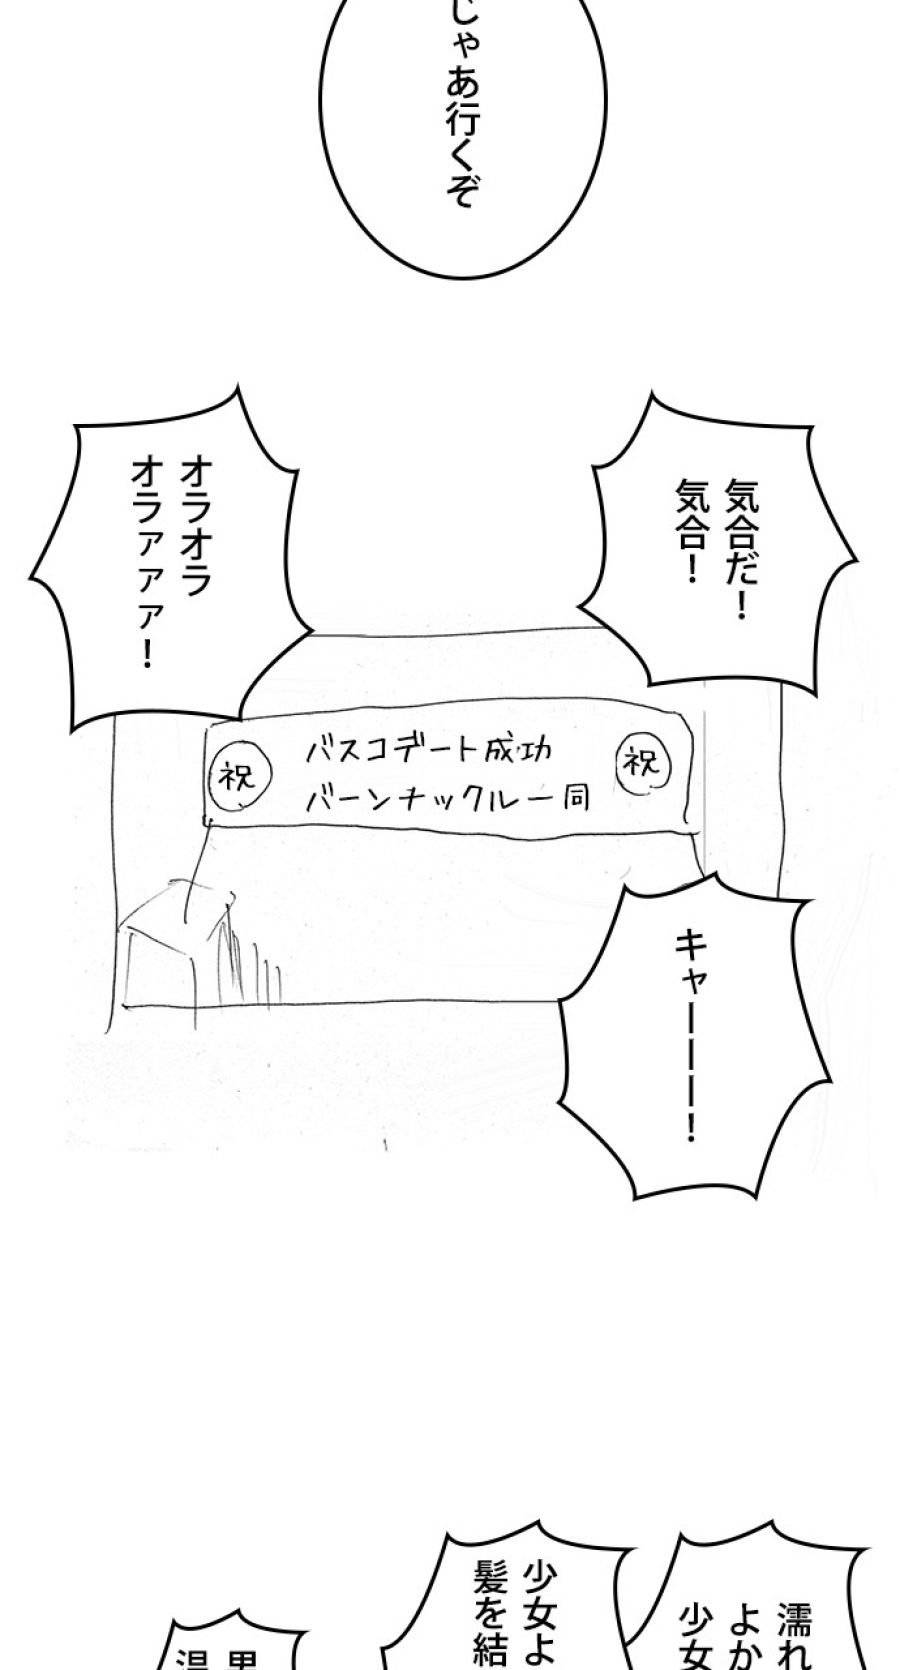 じゃあ行くぞ
気合だ！
気合！
オラオラ
オラァァァ！
祝
バスコデート成功
バーンナックル一同
祝
キャーーー！
濡れ
よか
少女
少女よ
髪を結
男
温